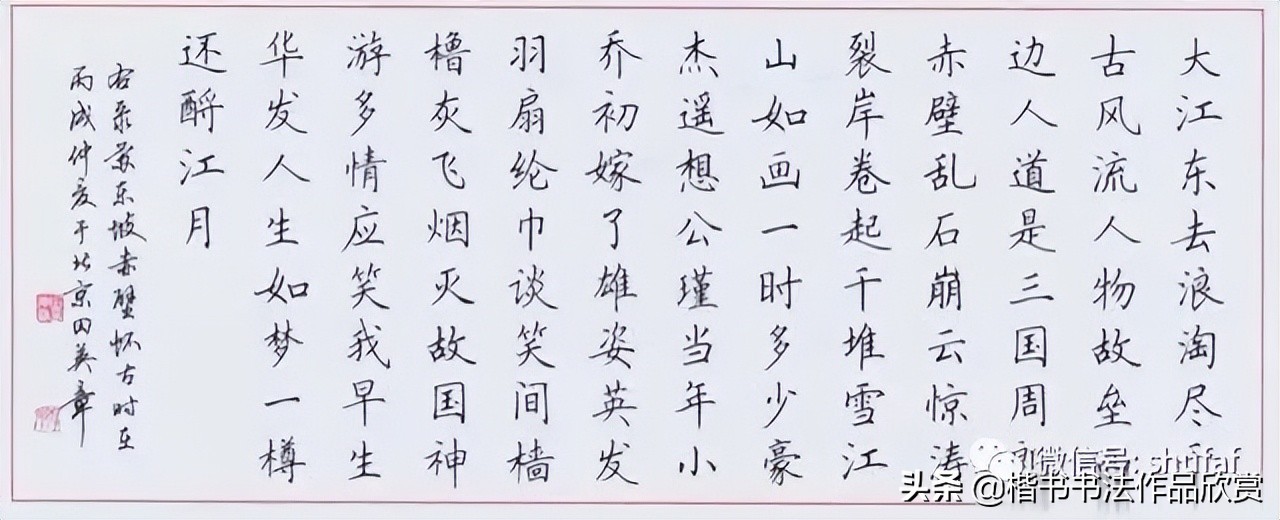 大江东去浪淘尽千
古风流人物故垒西
边人道是三国周郎
赤壁乱石崩云惊涛
裂岸卷起千堆雪江
山如画一时多少豪
杰遥想公瑾当年小
乔初嫁了雄姿英发
羽扇纶巾谈笑间樯
橹灰飞烟灭故国神
游多情应笑我早生
华发人生如梦一樽
还酹江月
右录苏东坡赤壁怀古时在
丙戌仲夏于北京田英章
微信号: shufaf
头条 @楷书书法作品欣赏